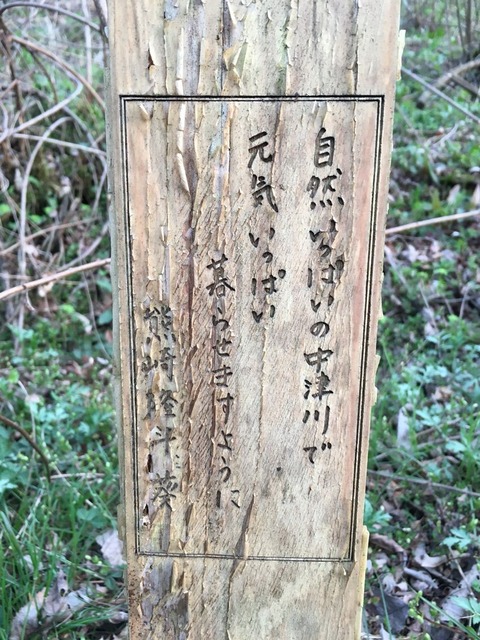 自然いっぱいの中津川で
元気いっぱい
暮らせますように
熊崎隆斗 葵